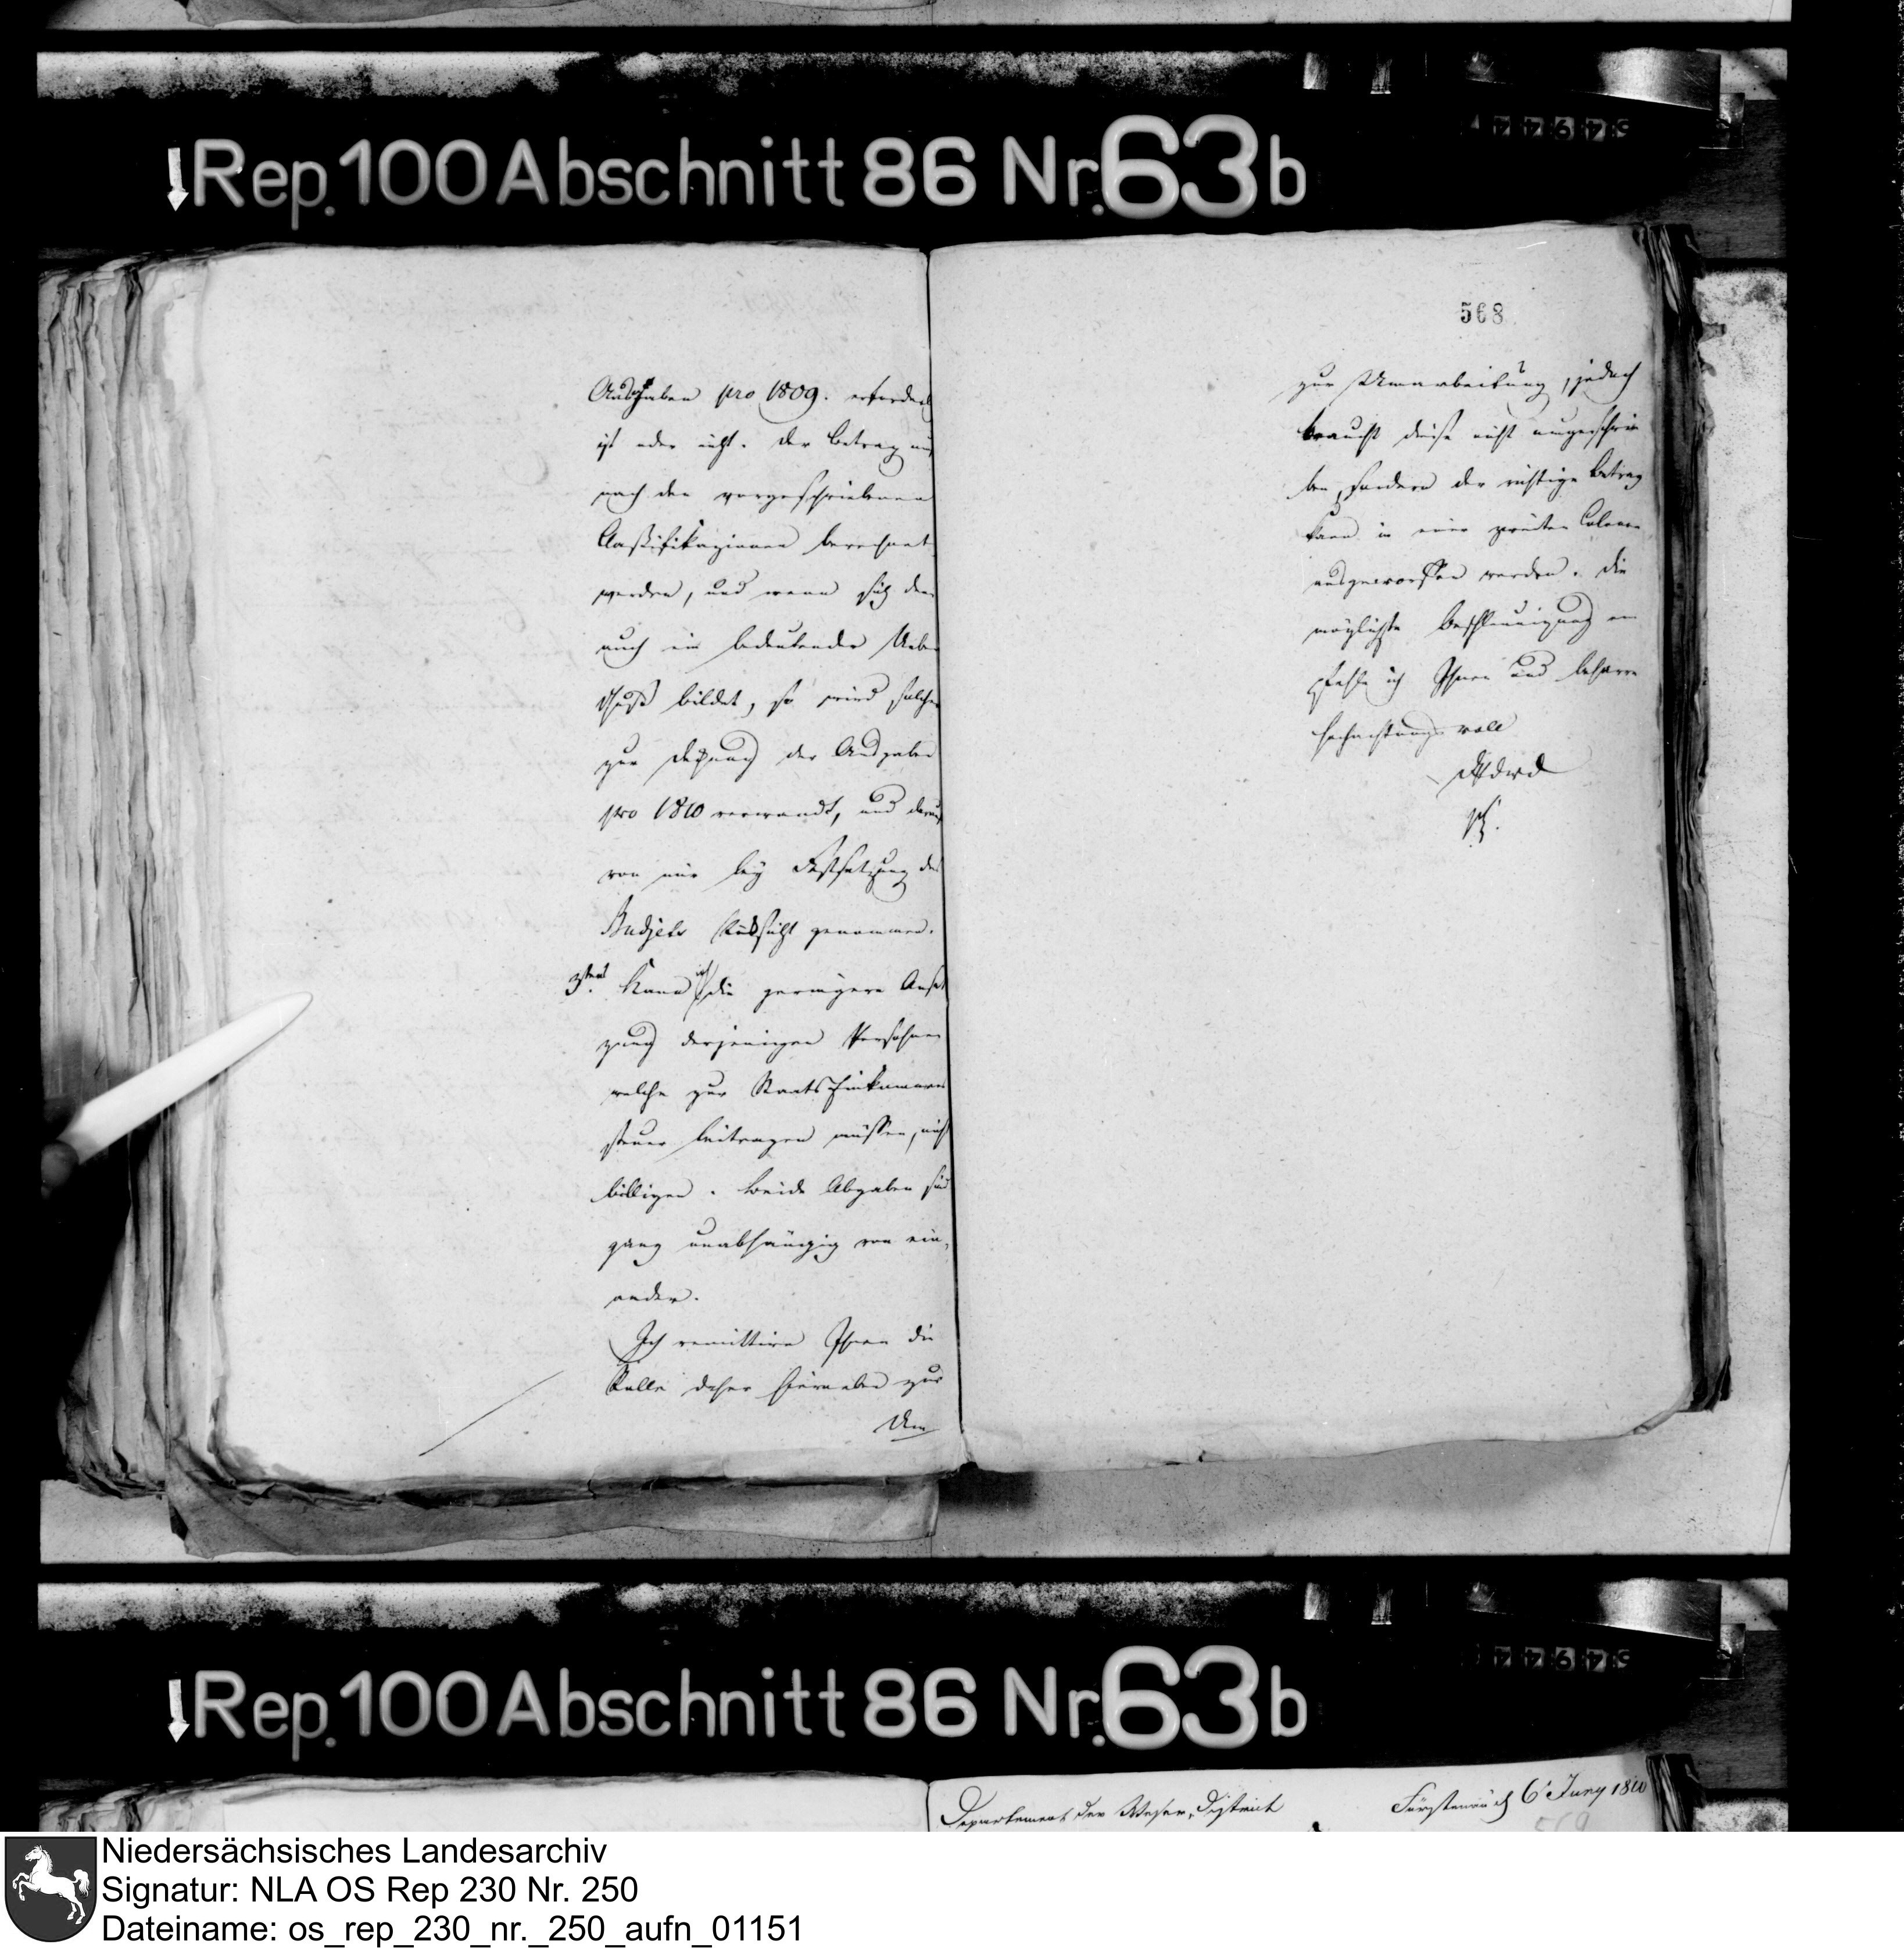 Rep. 100 Abschnitt 86 Nr. 63 b
Ausgaben pro 1809. erforderl
ist oder nicht. Der Betrag muß
nach den vorgeschriebenen
Classifikazionen berechnet
werden, und wenn sich dann
auch ein bedeutender Ueber
schuß bildet, so wird solcher
zur Deckung der Ausgaben
pro 1810 verwandt, und darauf
von mir bey Festsetzung des
Budjets Rücksicht genommen.
3tens Kann ich die geringere Anset
zung derjenigen Persohnen
welche zur Staats Einkommen
steuer beitragen müssen, nicht
billigen. Beide Abgaben sind
ganz unabhängig von ein,
ander.
Ich remittire Ihnen die
Rolle daher hierneben zur
Um
568
zur Umarbeitung, jedoch
braucht diese nicht umgeschrie
ben, sondern der richtige Betrag
kann in einer zweiten Colonne
ausgeworffen werden. Die
möglichste Beschleunigung em
pfehle ich Ihnen und beharre
hochachtungsvoll
Rep. 100 Abschnitt 86 Nr. 63 b
Departement der Weser, District
Fürstenau d 6t Juny 1810
569
Niedersächsisches Landesarchiv
Signatur: NLA OS Rep 230 Nr. 250
Dateiname: os_rep_230_nr._250_aufn_01151